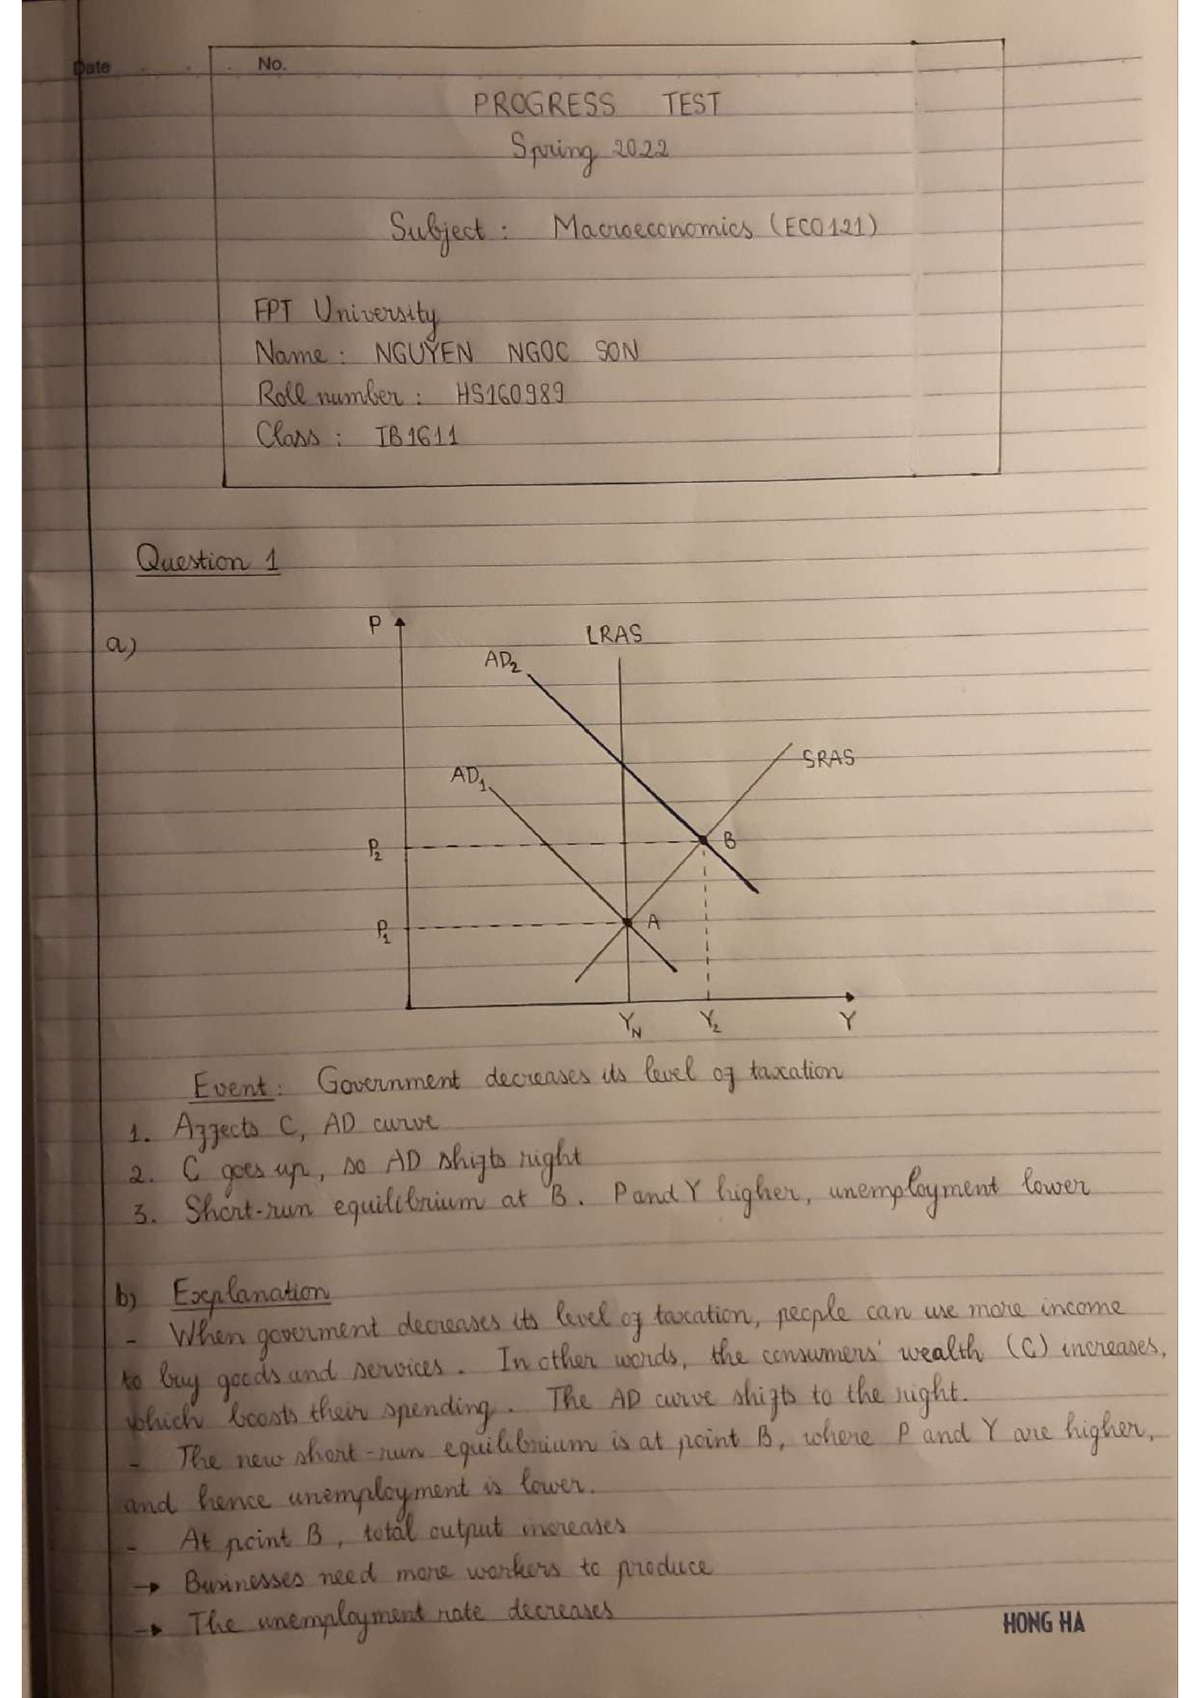 Date No.
PROGRESS TEST
Spring 2022
Subject : Macroeconomics (ECO121)
FPT University
Name : NGUYEN NGOC SON
Roll number : HS160989
Class : IB1611
Question 1
a)
P
LRAS
AD2
SRAS
AD1
P2
B
P1
A
YN Y2 Y
Event : Government decreases its level of taxation
1. Affects C, AD curve
2. C goes up, so AD shifts right
3. Short-run equilibrium at B. P and Y higher, unemployment lower
b) Explanation
- When goverment decreases its level of taxation, people can use more income
to buy goods and services. In other words, the consumers' wealth (C) increases,
which boosts their spending. The AD curve shifts to the right.
- The new short-run equilibrium is at point B, where P and Y are higher,
and hence unemployment is lower.
- At point B, total output increases
→ Businesses need more workers to produce
→ The unemployment rate decreases
HONG HA